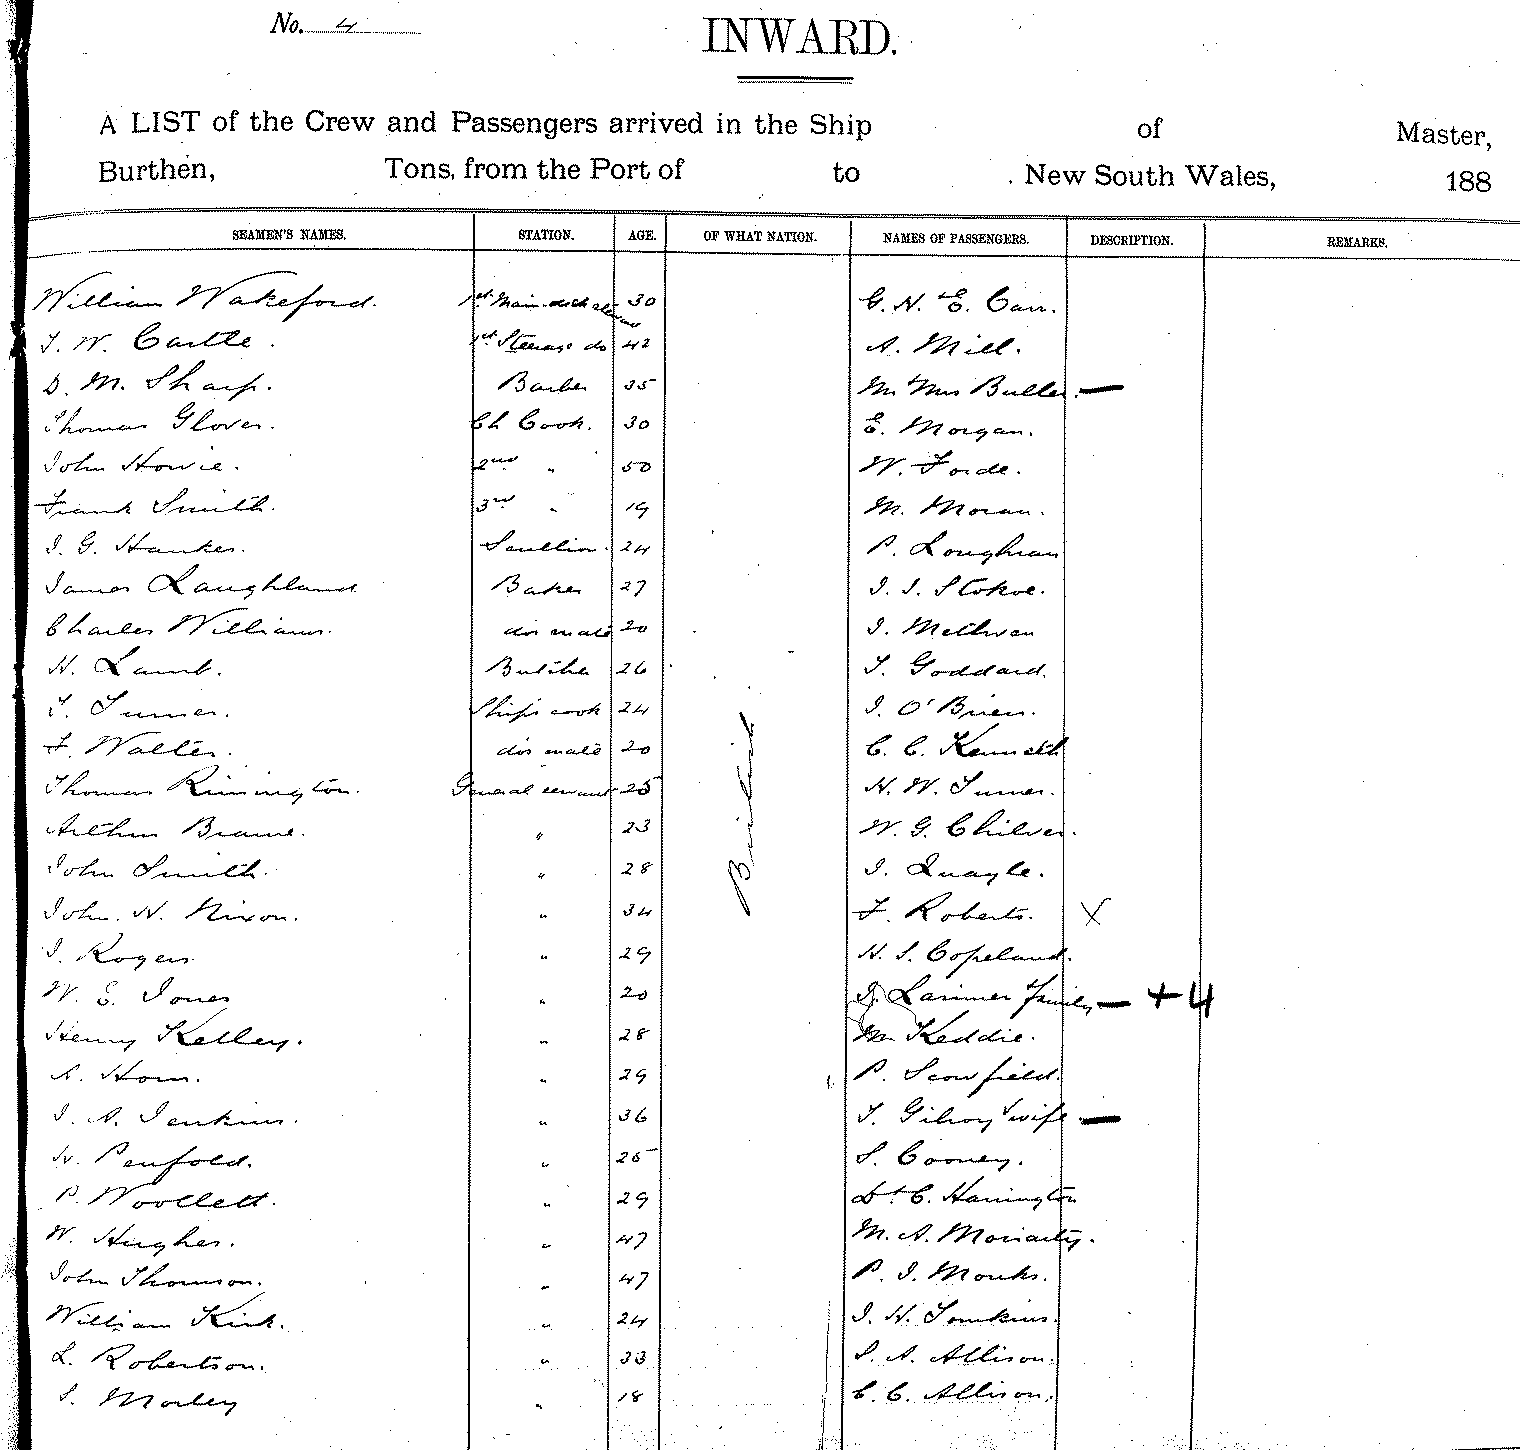 No. 4
INWARD.
A LIST of the Crew and Passengers arrived in the Ship of Master,
Burthen, Tons, from the Port of to New South Wales, 188
SEAMEN'S NAMES. STATION. AGE. OF WHAT NATION. NAMES OF PASSENGERS. DESCRIPTION. REMARKS.
William Wakeford. 1st Main deck 30 G. H. E. Carr.
T. W. Castle. 1st Steerage do 42 A. Mill.
D. M. Sharp. Barber 35 Mr Mrs Butler. —
Thomas Glover. Ch Cook. 30 E. Morgan.
John Howie. 2nd " 50 W. Forde.
Frank Smith. 3rd " 19 M. Moran.
J. G. Hawkes. Scullion. 24 P. Loughran
James Laughland Baker 27 J. J. Stokoe.
Charles Williams. dos mate 20 J. Methven
H. Lamb. Butcher 26 T. Goddard.
T. Turner. Ships cook 24 J. O'Brien.
F. Walter. dos mate 20 C. C. Kenneth
Thomas Rimington. General servant 25 H. W. Turner.
Arthur Braine. 23 W. G. Chilver.
" John Smith. " 28 J. Quayle.
John. H. Nixon. " 34 F. Roberts. X
J. Rogers " 29 H. S. Copeland.
W. E. Jones " 20 J. Larimer & family — + 4
Henry Kelley. " 28 Mr Keddie.
A. Horn. " 29 P. Scowfield.
J. A. Jenkins. " 36 T. Gilroy & wife —
H. Penfold. " 25 S. Cooney.
P. Woollett. " 29 Dr C. Harrington
W. Hughes. " 47 M. A. Moriarty.
John Thomson. " 47 P. J. Monks.
William Kirk. " 24 J. H. Tomkins.
L. Robertson. " 33 S. A. Allison.
S. Morley " 18 C. C. Allison.
British